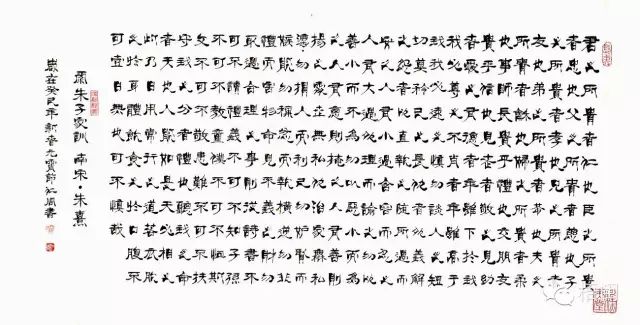 君之所貴者仁也臣之所貴
者忠也父之所貴者慈也子
之所貴者孝也兄之所貴者
友也弟之所貴者恭也夫之
所貴者和也婦之所貴者柔
也事師長貴乎禮也交朋友
貴乎信也見老者敬之見幼
者愛之有德者年雖下於我
我必尊之不肖者年雖高於
我我必遠之慎勿談人之短
切莫矜己之長仇者以義解
之怨者以直報之隨所遇而
安之人有小過含容而忍之
人有大過以理而諭之勿以
善小而不為勿以惡小而為
之人有惡則掩之人有善則
揚之處世無私仇治家無私
法勿損人而利己勿妒賢而
嫉能勿稱忿而報橫逆勿非
禮而害物命見不義之財勿
取遇合理之事則從詩書不
可不讀禮義不可不知子孫
不可不教童僕不可不恤斯
文不可不敬患難不可不扶
守之分者禮也聽我之命
者天也人能如是天必相之
此乃日用常行之道若衣服
之於身體飲食之於口腹不
可一日無也可不慎哉
朱子家訓 南宋·朱熹
歲在癸巳年新春元宵節書